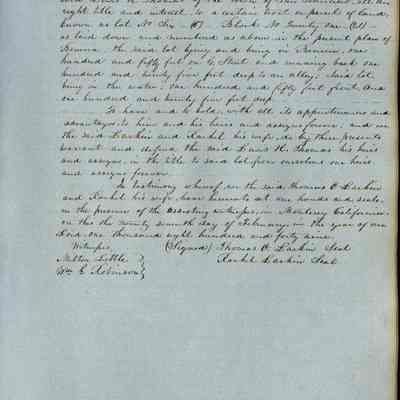 right title and interest, to a certain lot or parcel of land,
known as lot No Six — (6) — Block No Twenty one (21) —
as laid down and numbered as above in the present plan of
Benicia, the said lot lying and being in Benicia, one
hundred and fifty feet on G Street and running back one
hundred and twenty five feet deep to an alley. Said lot
being on the water, one hundred and fifty feet front and
one hundred and twenty five feet deep.
To have and to hold, with all its appurtenances and
advantages, to him and his heirs and assigns forever, and we
the said Larkin and Rachel his wife, do by these presents
warrant and defend the said David H. Thomas his heirs
and assigns, in the title to said lot, from ourselves our heirs
and assigns forever.
In testimony whereof, we the said Thomas O Larkin
and Rachel his wife, have hereunto set our hands and seals,
in the presence of the assisting witnesses, in Monterey California
on this the twenty seventh day of February, in the year of our
Lord one thousand eight hundred and forty nine.
Witnesses, (Signed) Thomas O Larkin Seal
Milton Little Rachel Larkin Seal
Wm E Robinson